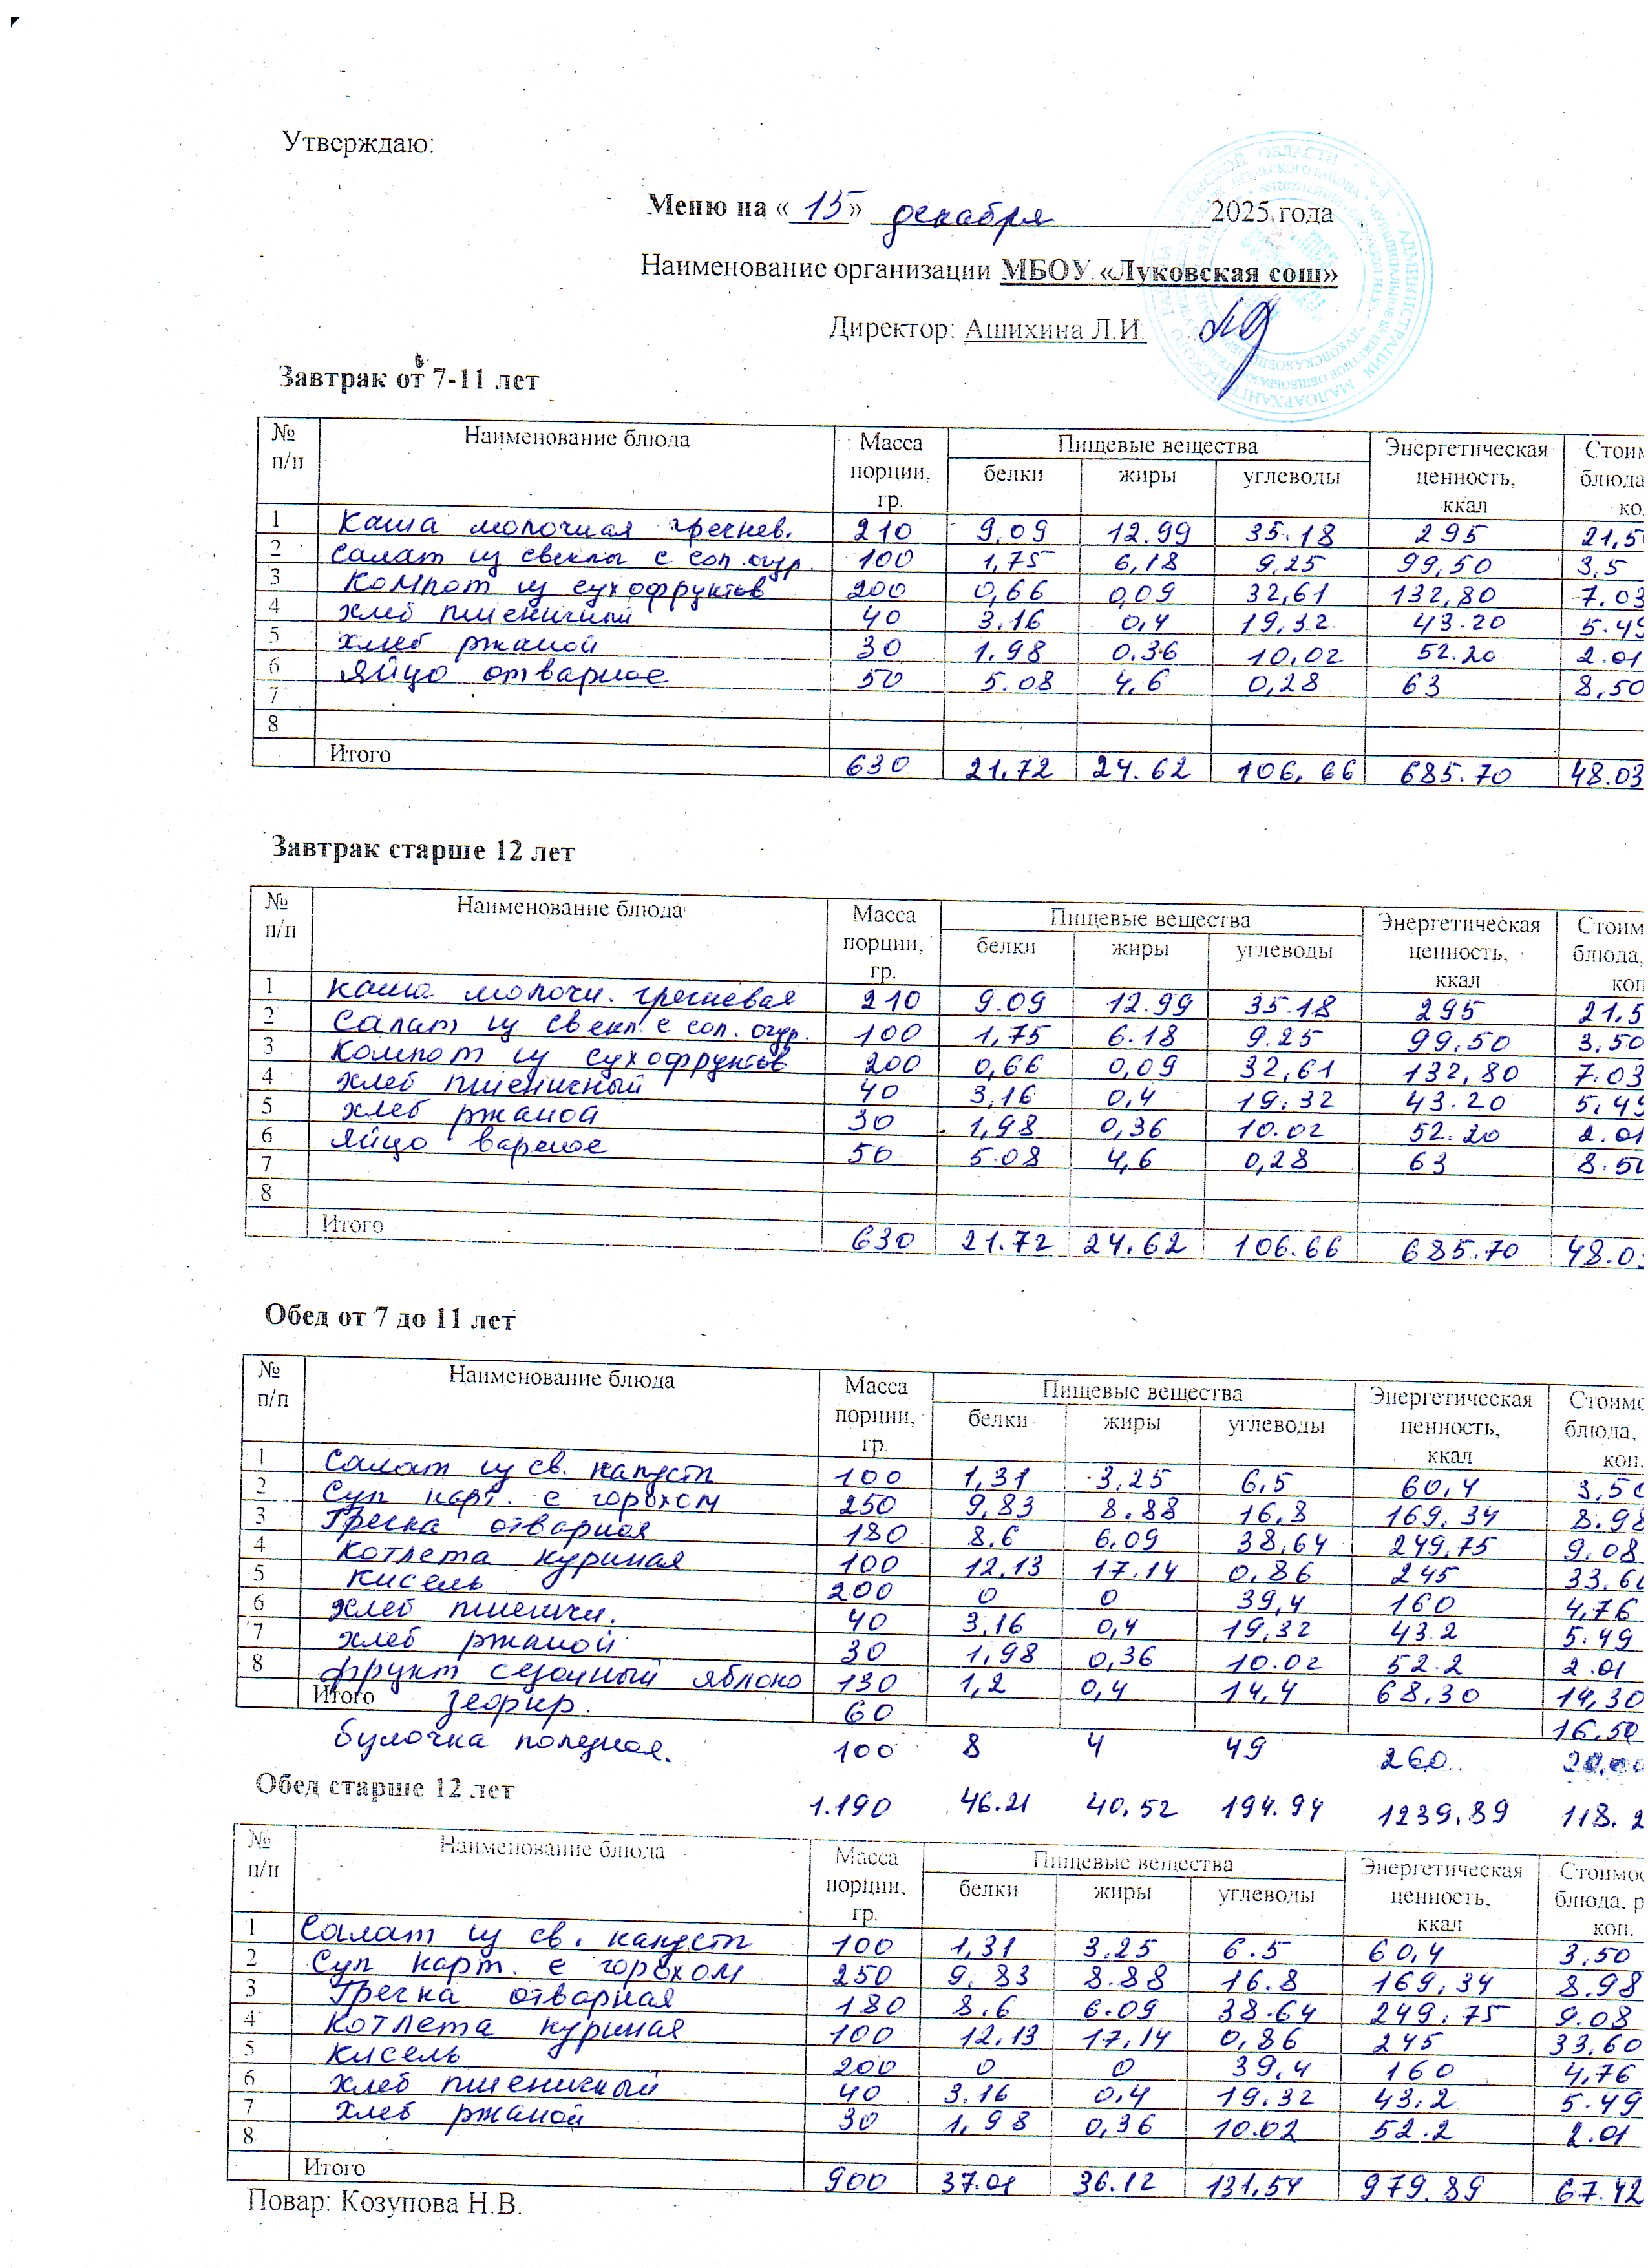 Утверждаю:
Меню на «15» декабря 2025 года
Наименование организации МБОУ «Луковская сош»
Директор: Ашихина Л.И.
Завтрак от 7-11 лет
№ п/п Наименование блюда Масса порции, гр. Пищевые вещества белки жиры углеводы Энергетическая ценность, ккал Стоим блюда ко
1 Каша молочная гречнев. 210 9,09 12.99 35.18 295 21,5
2 Салат из свеклы с сол.огур. 100 1,75 6,18 9.25 99,50 3,5
3 Компот из сухофруктов 200 0,66 0,09 32,61 132,80 7.03
4 хлеб пшеничный 40 3.16 0,4 19,32 43.20 5.49
5 хлеб ржаной 30 1.98 0.36 10,02 52.20 2.01
6 Яйцо отварное 50 5.08 4,6 0,28 63 8,50
7
8
Итого 630 21,72 24.62 106,66 685.70 48.03
Завтрак старше 12 лет
№ п/п Наименование блюда Масса порции, гр. Пищевые вещества белки жиры углеводы Энергетическая ценность, ккал Стоим блюда, коп
1 Каша молочн. гречневая 210 9.09 12.99 35.18 295 21.5
2 Салат из свекл. с сол. огур. 100 1,75 6.18 9.25 99,50 3,50
3 Компот из сухофруктов 200 0,66 0,09 32,61 132,80 7.03
4 хлеб пшеничный 40 3,16 0,4 19.32 43.20 5,49
5 хлеб ржаной 30 1,98 0,36 10.02 52.20 2.01
6 Яйцо вареное 50 5.08 4,6 0,28 63 8.50
7
8
Итого 630 21.72 24.62 106.66 685.70 48.03
Обед от 7 до 11 лет
№ п/п Наименование блюда Масса порции, гр. Пищевые вещества белки жиры углеводы Энергетическая ценность, ккал Стоимо блюда, коп.
1 Салат из св. капусты 100 1,31 3.25 6,5 60,4 3,50
2 Суп карт. с горохом 250 9,83 8.88 16,8 169,34 8.98
3 Гречка отварная 180 8.6 6.09 38,64 249,75 9.08
4 Котлета куриная 100 12,13 17.14 0,86 245 33,60
5 Кисель 200 0 0 39,4 160 4,76
6 Хлеб пшеничн. 40 3,16 0,4 19,32 43.2 5.49
7 хлеб ржаной 30 1,98 0,36 10.02 52.2 2.01
8 фрукт сезонный яблоко 130 1,2 0,4 14,4 68,30 14,30
Итого зефир. 60 16,50
булочка полезная. 100 8 4 49 260 20,00
Обед старше 12 лет 1.190 46.21 40,52 194.94 1239,89 118.2
№ п/п Наименование блюда Масса порции, гр. Пищевые вещества белки жиры углеводы Энергетическая ценность, ккал Стоимос блюда, р коп.
1 Салат из св. капусты 100 1,31 3.25 6.5 60,4 3,50
2 Суп карт. с горохом 250 9,83 8.88 16.8 169,34 8.98
3 Гречка отварная 180 8.6 6.09 38.64 249,75 9.08
4 Котлета куриная 100 12,13 17,14 0,86 245 33,60
5 Кисель 200 0 0 39,4 160 4,76
6 Хлеб пшеничный 40 3.16 0,4 19,32 43,2 5.49
7 хлеб ржаной 30 1,98 0,36 10.02 52.2 2.01
8
Итого 900 37.01 36.12 131,54 979,89 67.42
Повар: Козупова Н.В.